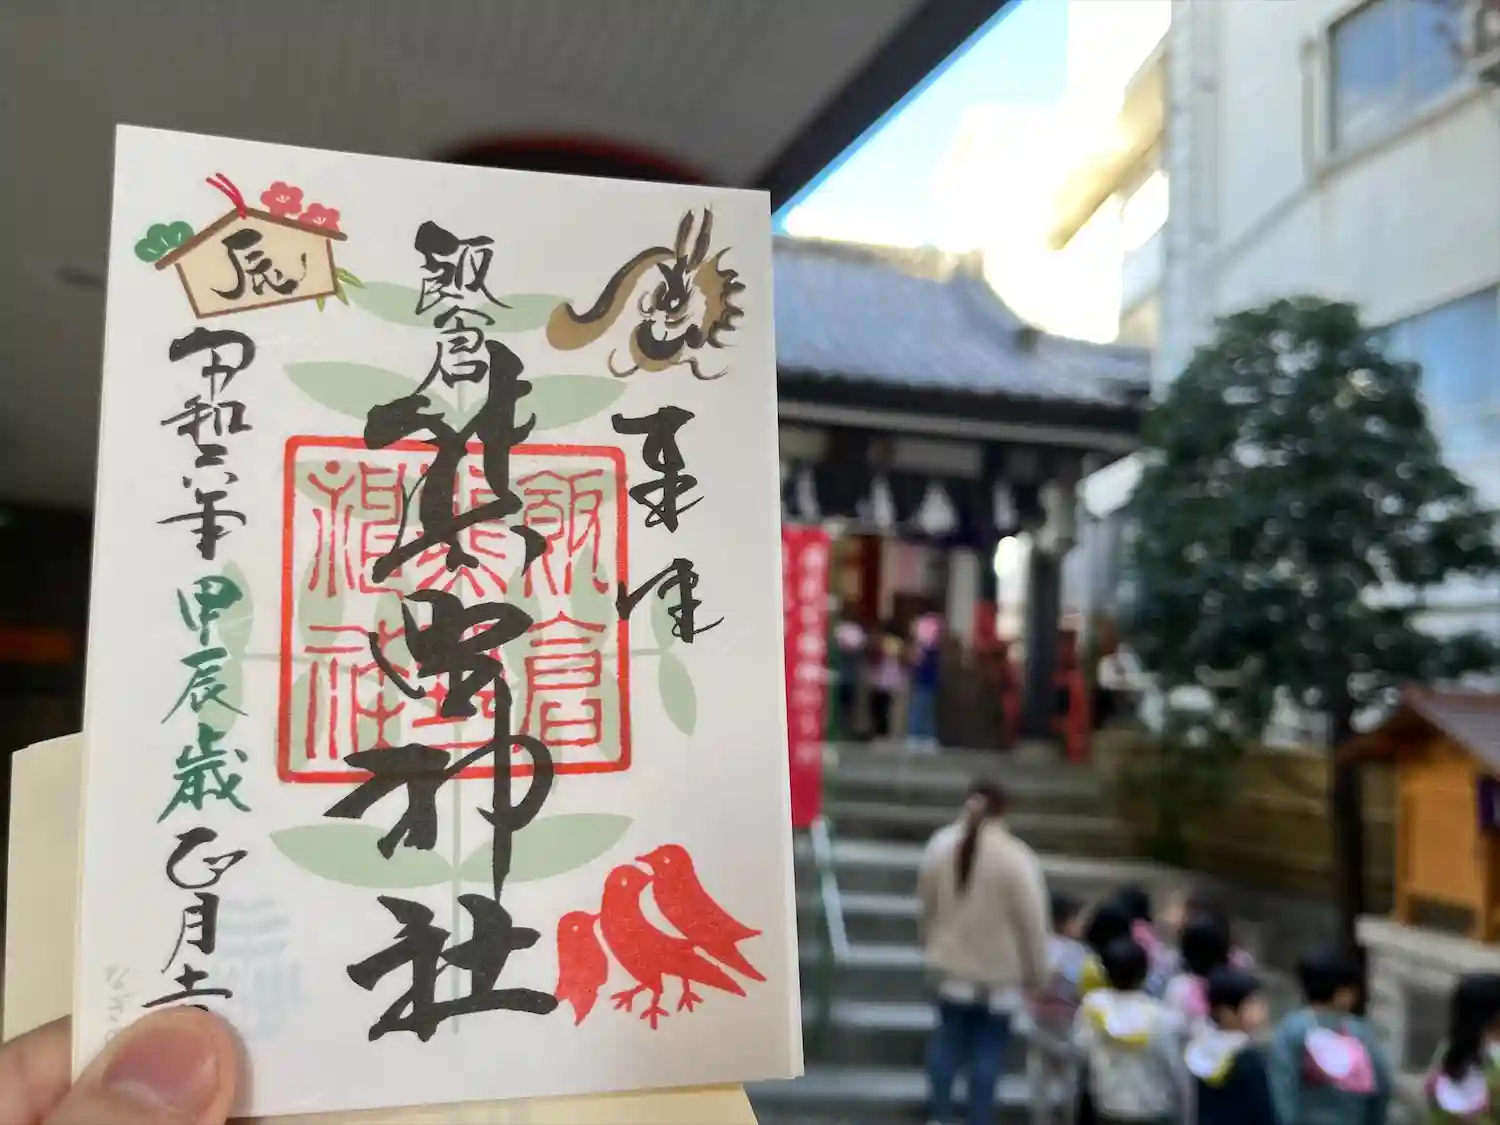 奉拝
飯倉
熊野神社
飯倉
熊野
神社
辰
令和六年
甲辰歳
正月十